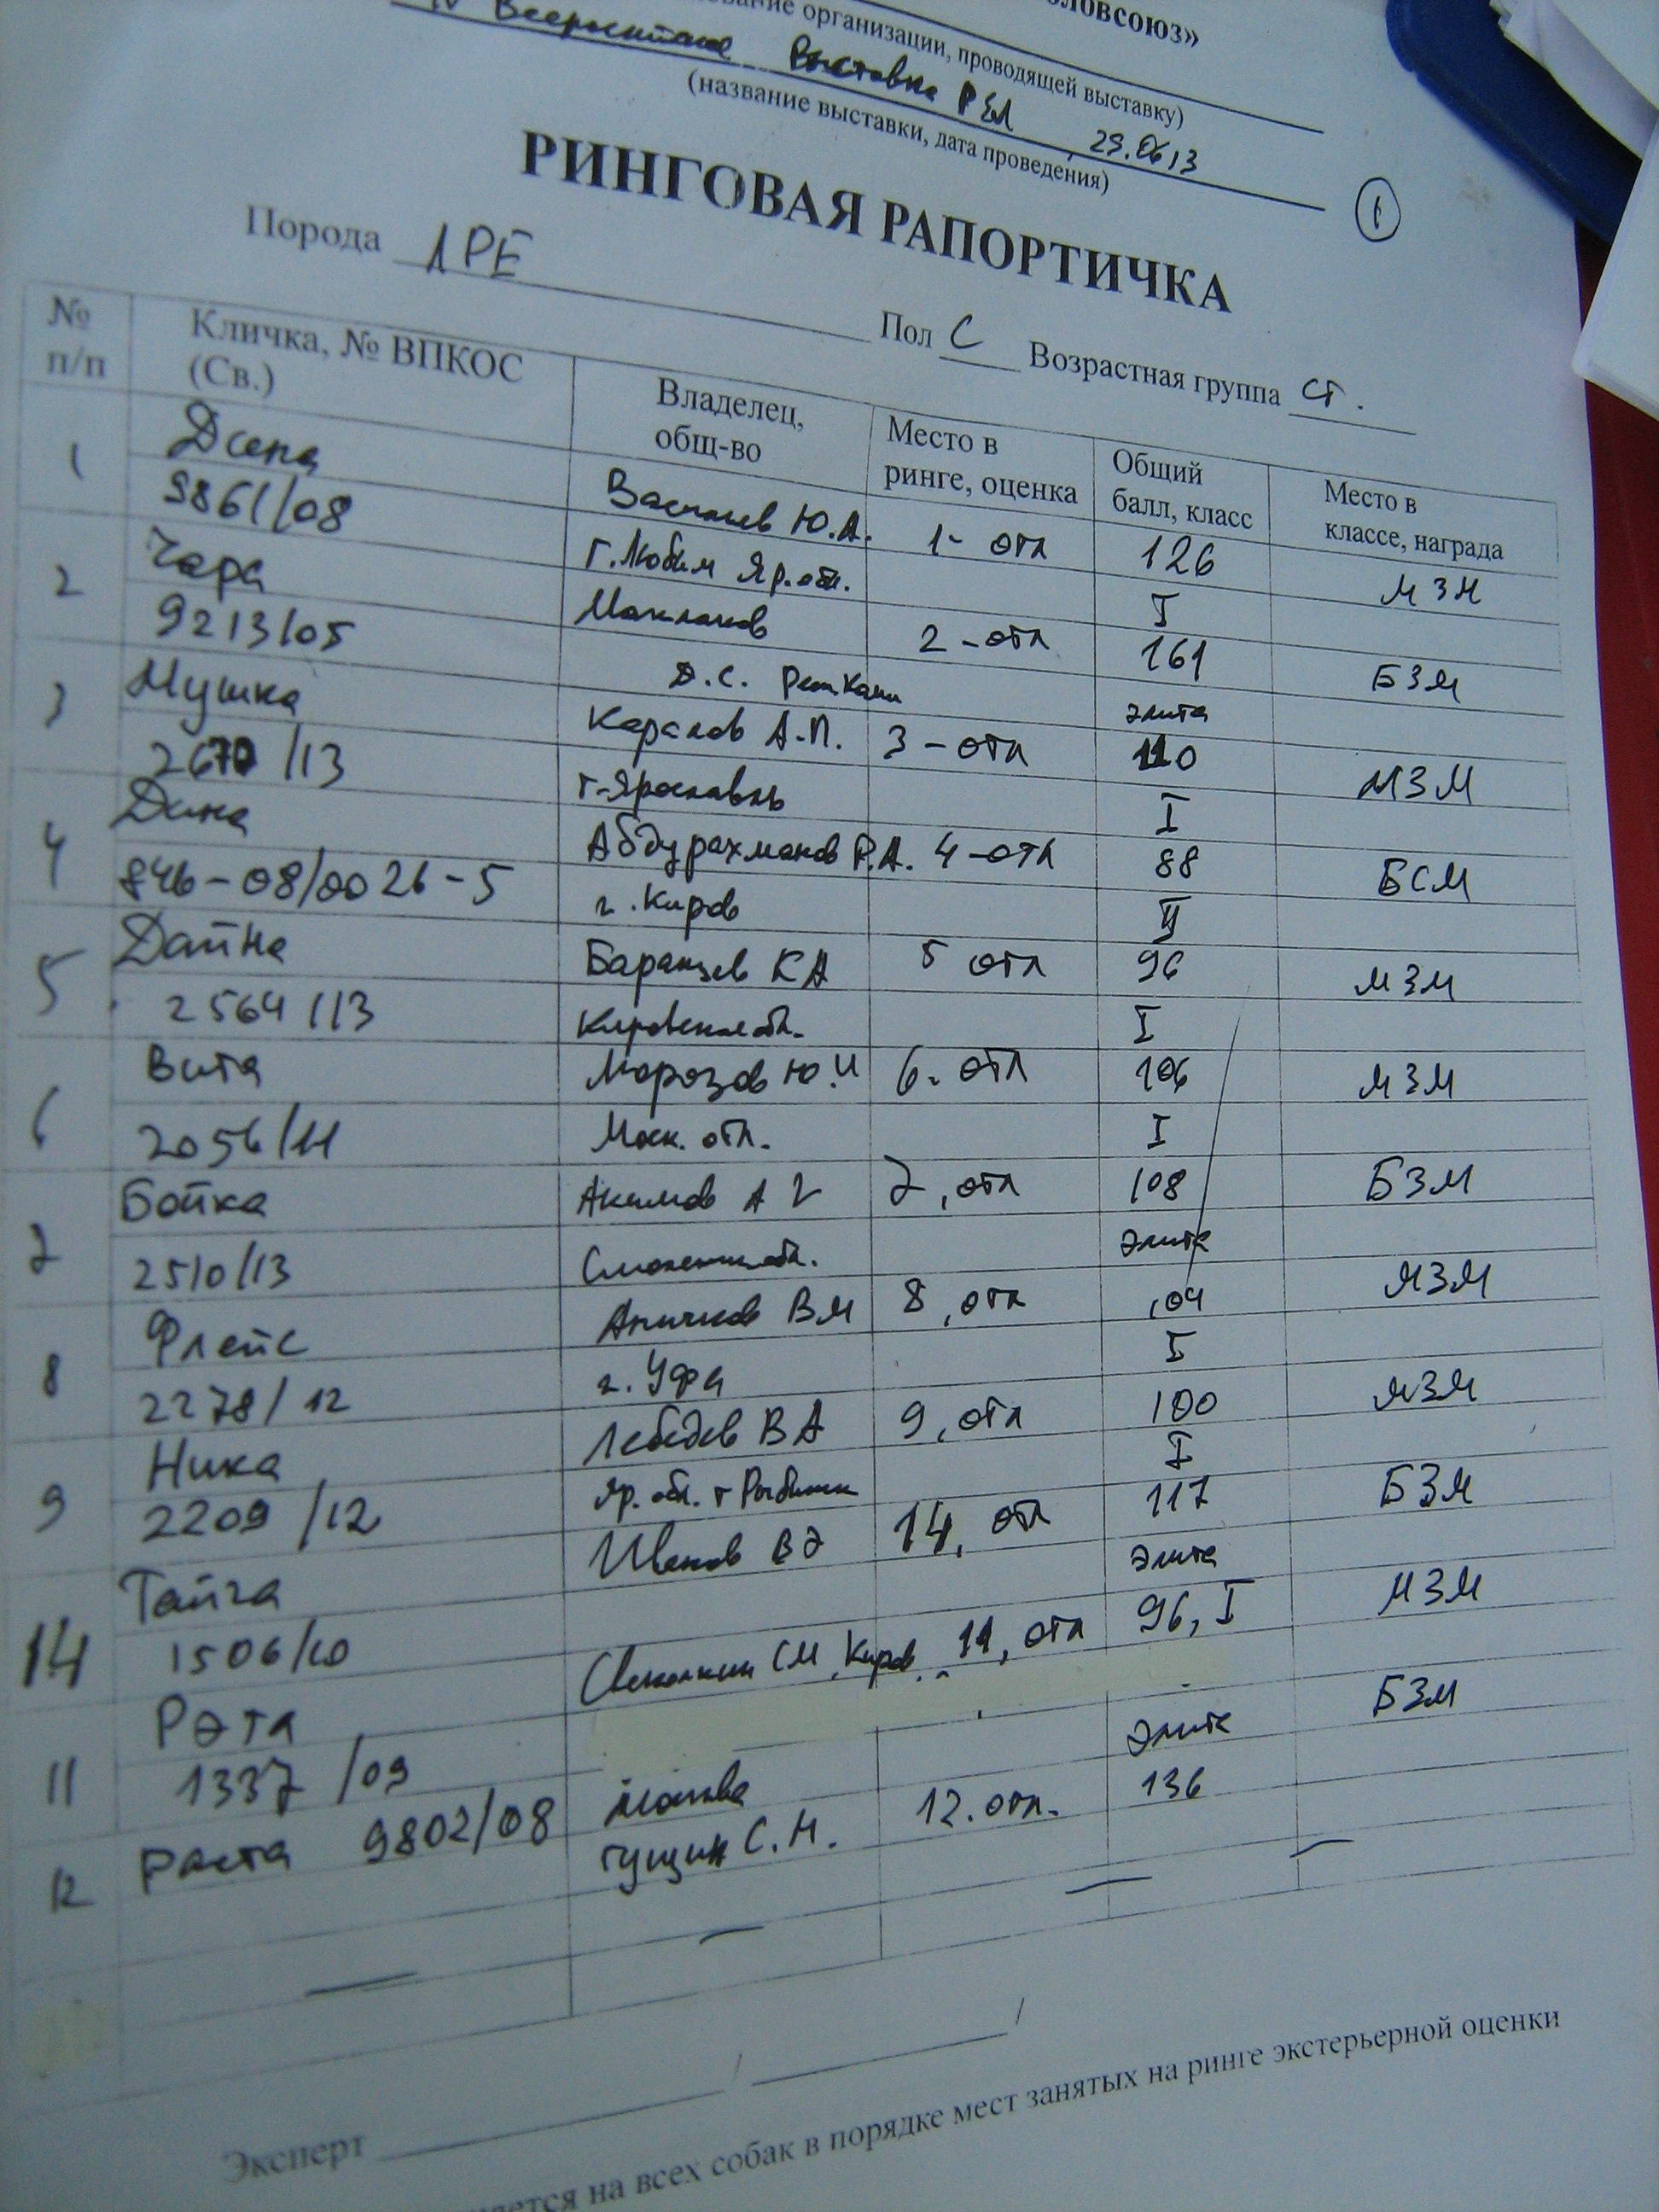 ловсоюз»
ование организации, проводящей выставку)
IV Всероссийская Выставка РЕЛ, 29.06 13
(название выставки, дата проведения)
1
РИНГОВАЯ РАПОРТИЧКА
Порода ЛРЕ Пол С Возрастная группа СТ.
№ п/п Кличка, № ВПКОС (Св.) Владелец, общ-во Место в ринге, оценка Общий балл, класс Место в классе, награда
1 Васильев Ю.А. 1- отл 126 МЗМ
9861/08 г.Любим Яр.обл. I
2 Чара 2 - отл 161 БЗМ
9213/05 Д.С. элита
3 Мушка А.П. 3 - отл 110 МЗМ
2670/13 г-Ярославль I
4 Дина Абдурахманов Р.А. 4 - отл 88 БСМ
846-08/0026-5 г.Киров II
5 Дайна Баранцев КА 5 отл 96 МЗМ
2564/13 Кировская обл. I
6 Вита Морозов Ю.И 6. отл 106 МЗМ
2056/11 Моск. обл. I
7 Бойка Акимов А 7, отл 108 БЗМ
2510/13 Смоленская обл. элита
8 Флейс Аничков ВМ 8, отл 104 МЗМ
2278/12 г. Уфа I
9 Ника Лебедев ВА 9, отл 100 МЗМ
2209/12 Яр. обл. г Рыбинск I
14 Тайга Иванов ВЭ 14, отл 117 БЗМ
1506/10 элита
11 Рэта СМ, Киров. 11, отл 96, I МЗМ
1337/09
12 Раста 9802/08 Москва Гущин С.Н. 12. отл. элита 136 БЗМ
Эксперт / /
няется на всех собак в порядке мест занятых на ринге экстерьерной оценки